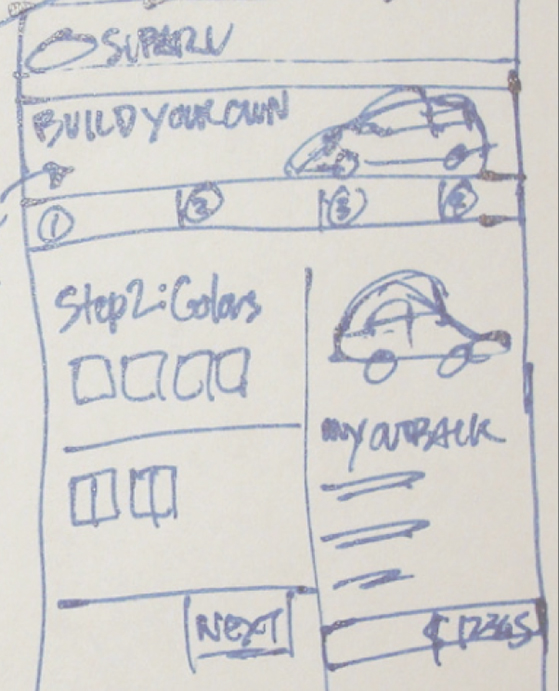 SUBARU
BUILD YOUR OWN
1 2 3 4
Step 2: Colors
MY OUTBACK
NEXT
$12345